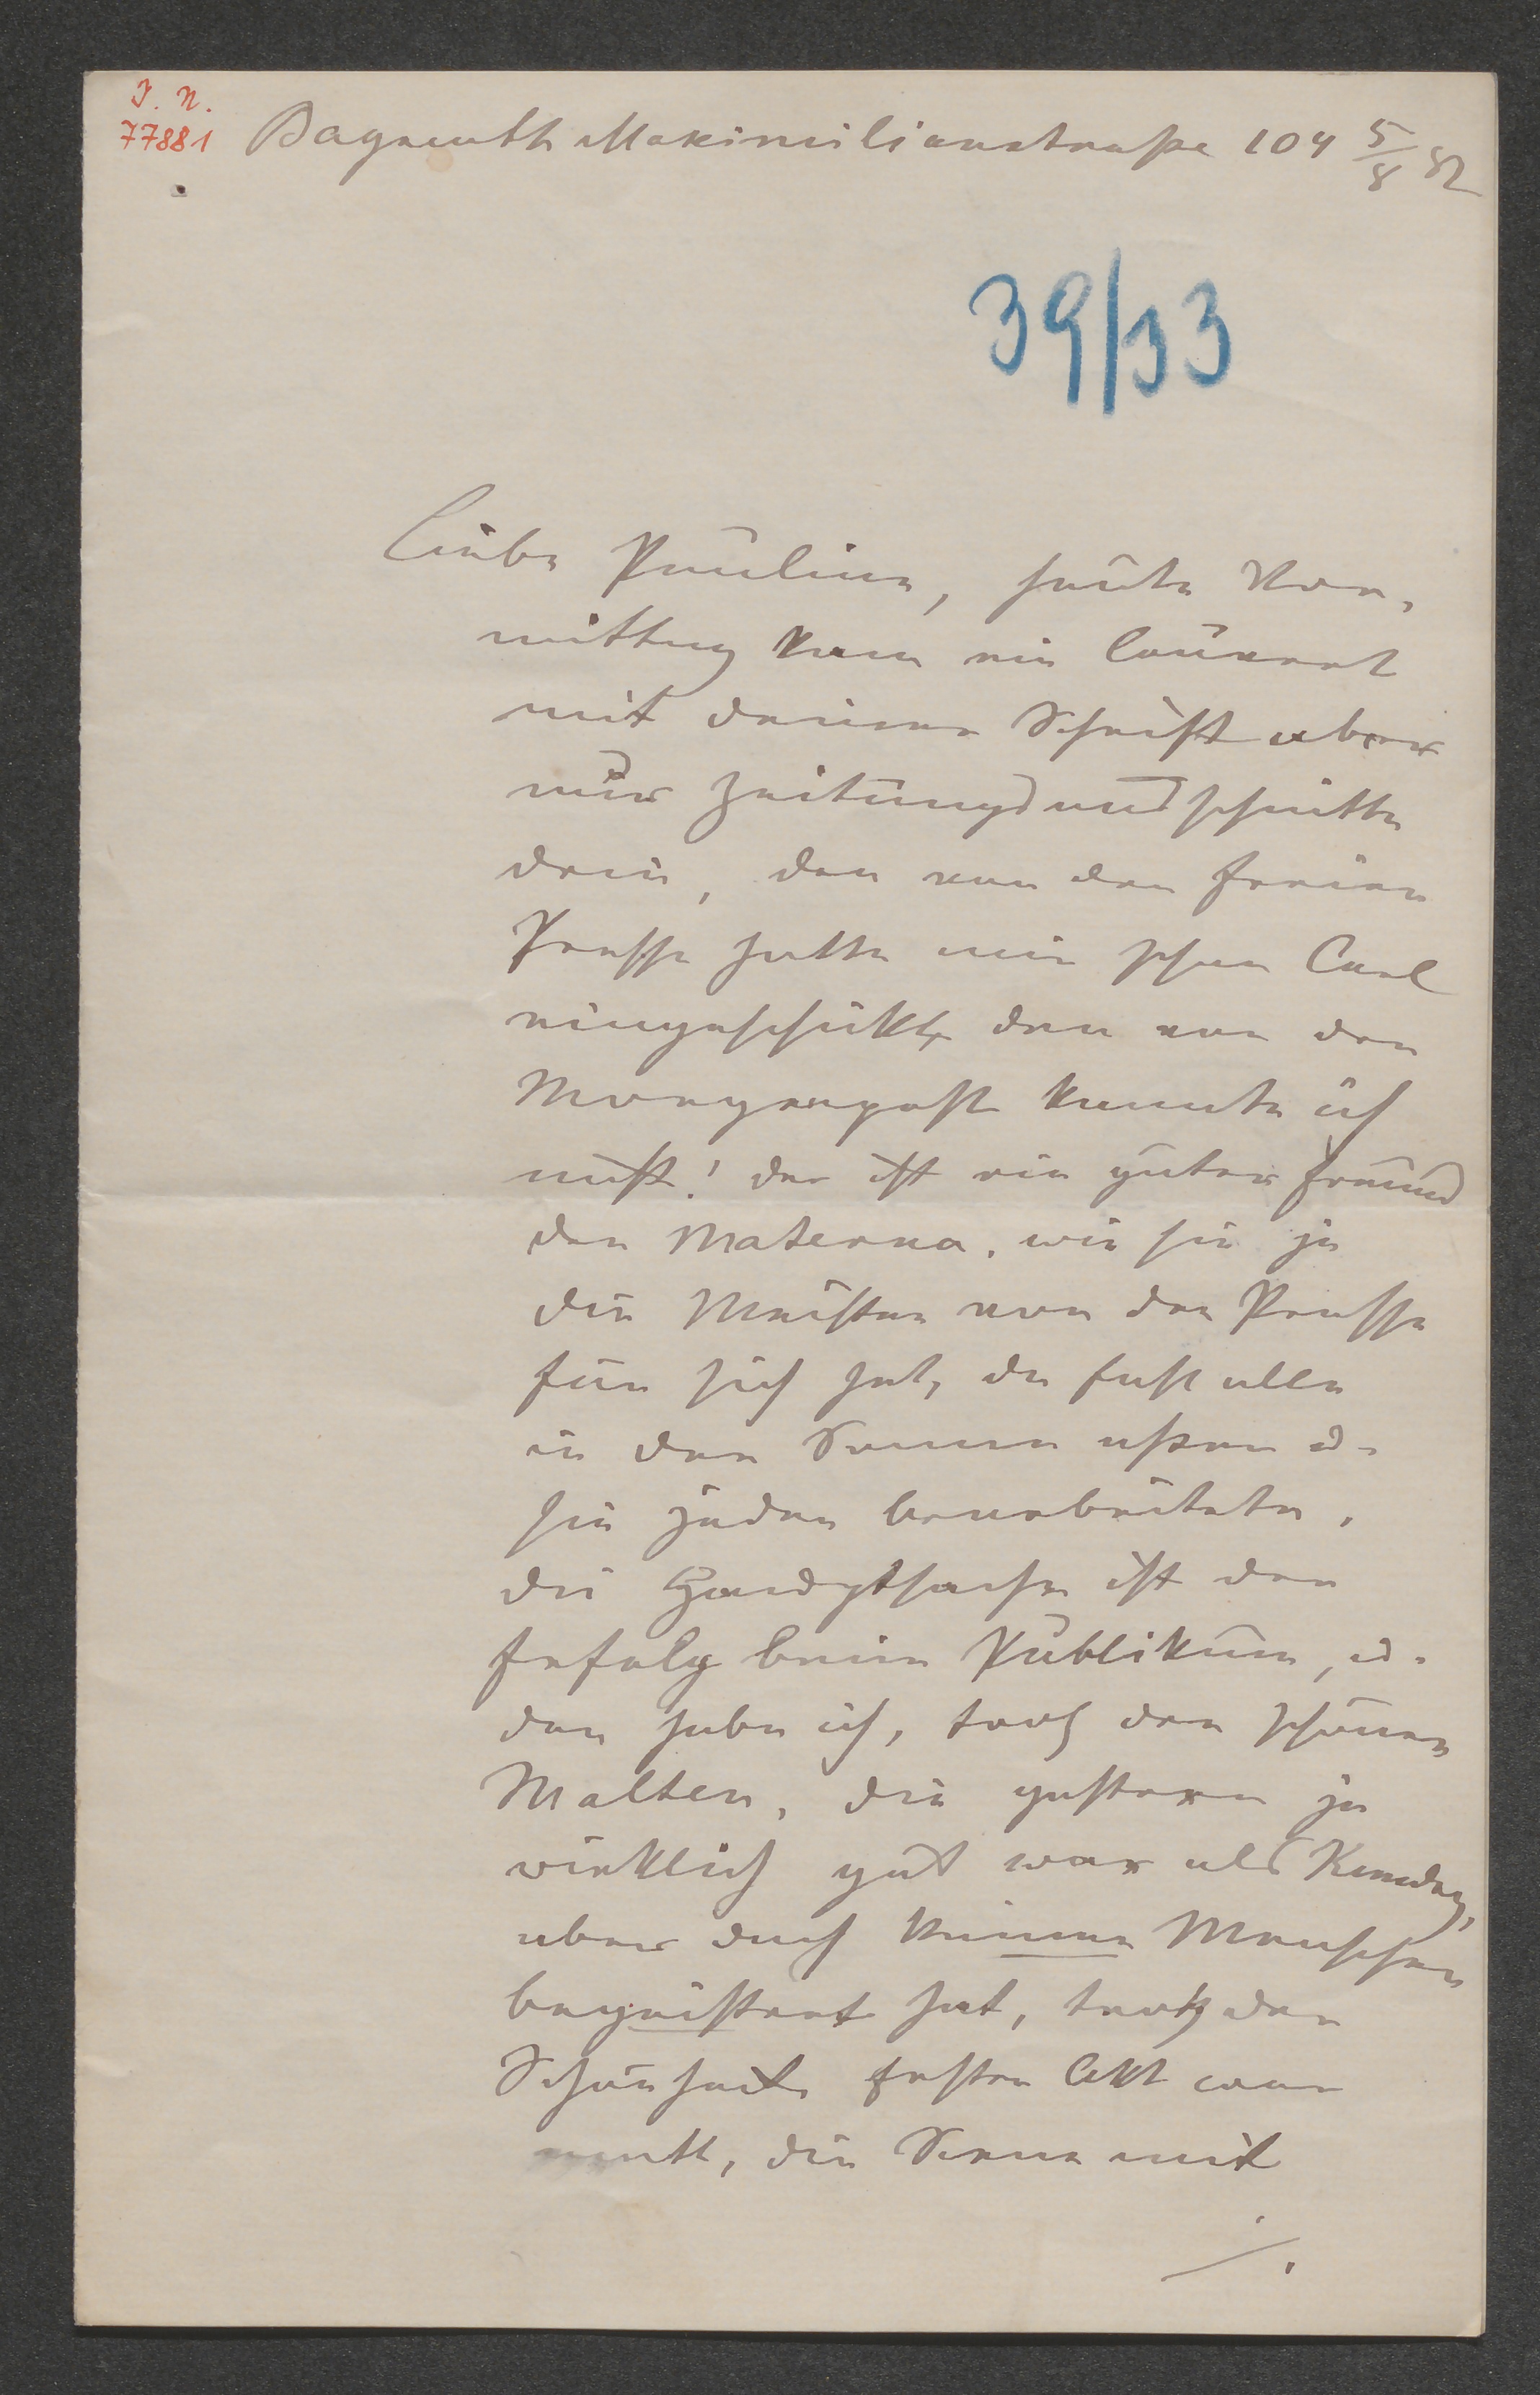 I. N.
77881
Bayreuth Maximilianstraße 104 5/8 82
39/33
Liebe Pauline, heute Vor-
mittag kam ein Couvert
mit deiner Schrift aber
nur Zeitungsausschnitte
drin, den von der freien
Presse hatte mir schon Carl
eingeschickt, den von der
Morgenpost kannte ich
nicht! der ist ein guter Freund
der Materna, wie sie ja
die Meisten von der Presse
für sich hat, da fast alle
in der Sonne aßen u.
sie jeden bearbeitete,
die Hauptsache ist der
Erfolg beim Publikum, u.
den habe ich, trotz der schönen
Malten, die gestern ja
wirklich gut war als Kundry,
aber doch keinen Menschen
begeistert hat, trotz der
Schönheit. Ersten Akt war
matt, die Scene mit
./.